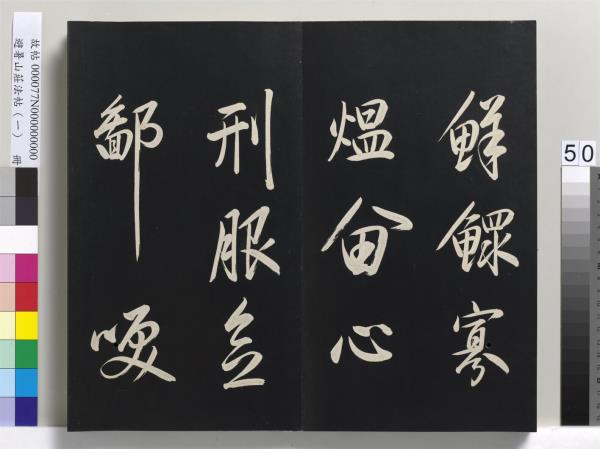 鮮鰥寡
熅畣心
刑服
鄙哽
故帖 000077N000000000
避暑山莊法帖（一） 冊
50